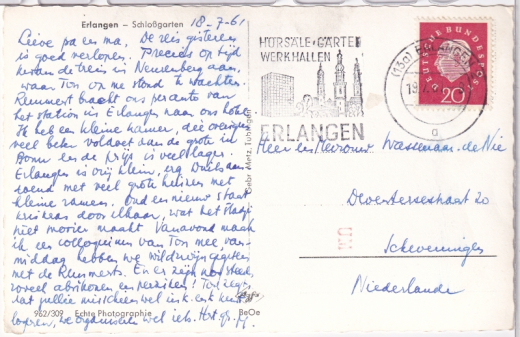 Erlangen – Schloßgarten
18-7-61
Lieve pa en ma, De reis gisteren
is goed verlopen. Precies op tijd
kwam de trein in Neurenberg aan,
waar Ton me stond te wachten.
Remmert bracht ons per auto van
het station in Erlangen naar ons hotel.
Ik heb een kleine kamer, die overigens
veel beter voldoet dan de grote in
Bonn en de prijs is veel lager.
Erlangen is vrij klein, erg Duits aan-
doend met veel grote huizen met
kleine ramen. Oud en nieuw staat
kris kras door elkaar, wat het stadje
niet mooier maakt. Vanavond maak
ik een colloquium van Ton mee, van-
middag hebben we wild zwijn gegeten
met de Remmerts. En er zijn nog steeds
zoveel abrikozen en perziken! Ton zegt
dat jullie misschien wel
lopen, we organiseren wel iets. Hart. gr.
962/309 Echte Photographie BeOe
Gebr. Metz, Tübingen
HÖRSÄLE·GÄRTEN
WERKHALLEN
ERLANGEN
(13a) ERLANGEN
19.7.
a
DEUTSCHE BUNDESPOST
20
Heer en Mevrouw Wassenaar-de Nie
Deventersestraat 20
Scheveningen
Niederlande